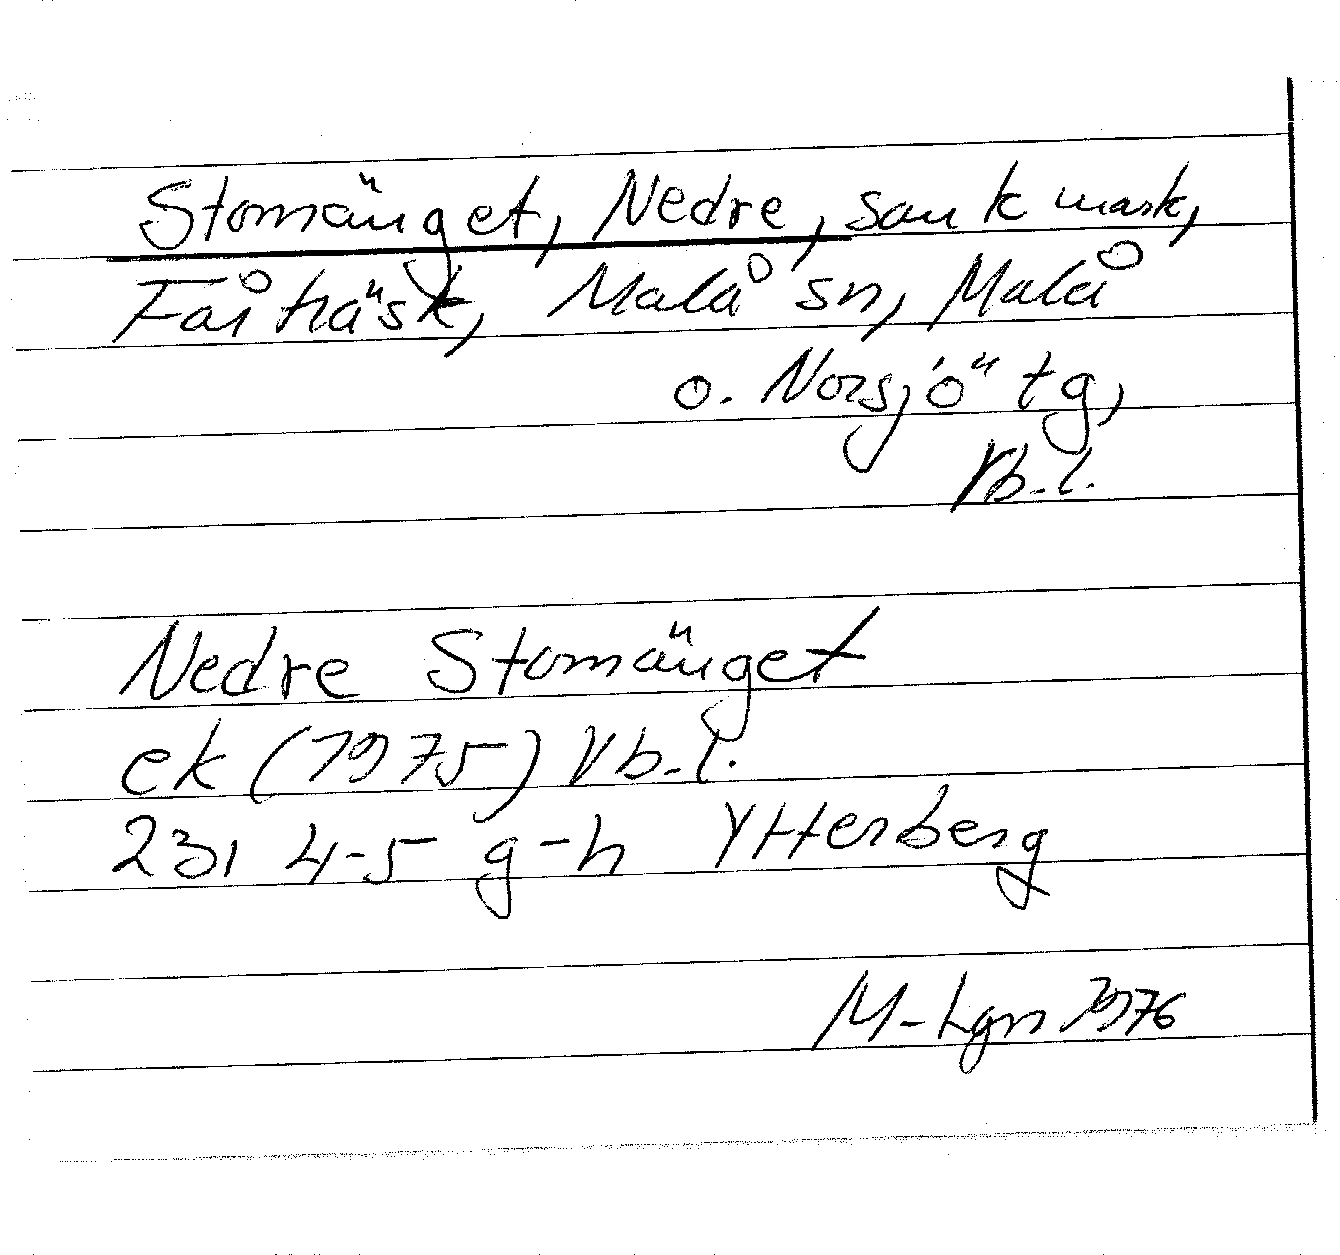 Stomänget, Nedre, sank mark,
Fårträsk, Malå sn, Malå
o. Norsjö tg,
Vb.l.
Nedre Stomänget
ek (1975) Vb.l.
23I 4-5 g-h Ytterberg
M-Lgn 1976